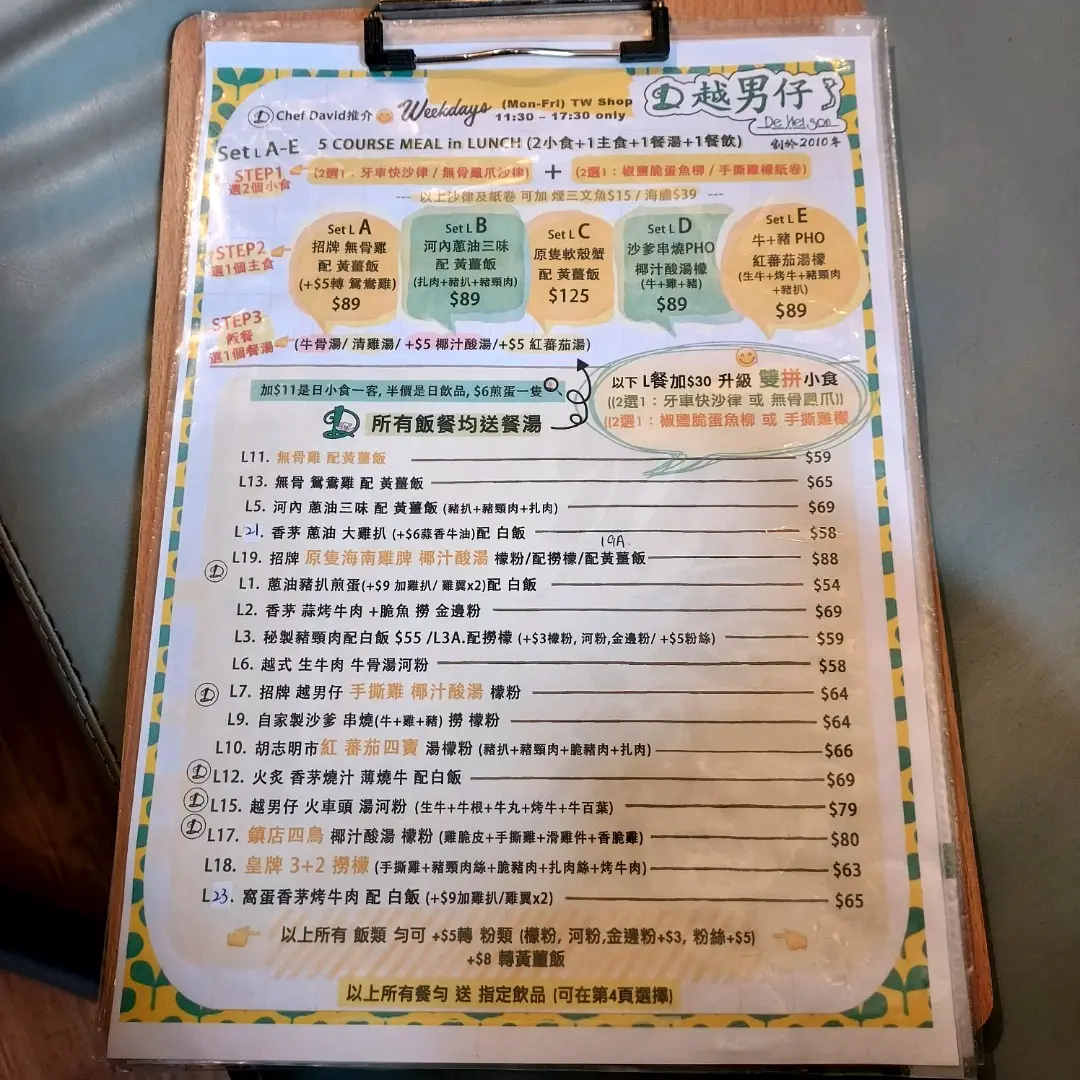 Chef David推介 Weekdays (Mon-Fri) TW Shop 11:30 – 17:30 only
越男仔
De Hei.son
創於2010年
Set L A-E 5 COURSE MEAL in LUNCH (2小食+1主食+1餐湯+1餐飲)
STEP1 選2個小食
(2選1﹕牙車快沙律 / 無骨鳳爪沙律) + (2選1﹕椒鹽脆蛋魚柳 / 手撕雞檬紙卷)
--- 以上沙律及紙卷 可加 煙三文魚$15 / 海膽$39 ---
STEP2 選1個主食
Set L A
招牌 無骨雞
配 黃薑飯
(+$5轉 鴛鴦雞)
$89
Set L B
河內蔥油三味
配 黃薑飯
(扎肉+豬扒+豬頸肉)
$89
Set L C
原隻軟殼蟹
配 黃薑飯
$125
Set L D
沙爹串燒PHO
椰汁酸湯檬
(牛+雞+豬)
$89
Set L E
牛+豬 PHO
紅蕃茄湯檬
(生牛+烤牛+豬頸肉
+豬扒)
$89
STEP3
飯餐
選1個餐湯
(牛骨湯/ 清雞湯/ +$5 椰汁酸湯/+$5 紅蕃茄湯)
加$11是日小食一客, 半價是日飲品, $6煎蛋一隻
以下 L餐加$30 升級 雙拼小食
((2選1﹕牙車快沙律 或 無骨鳳爪))
((2選1﹕椒鹽脆蛋魚柳 或 手撕雞檬
所有飯餐均送餐湯
L11. 無骨雞 配黃薑飯 $59
L13. 無骨 鴛鴦雞 配 黃薑飯 $65
L5. 河內 蔥油三味 配 黃薑飯 (豬扒+豬頸肉+扎肉) $69
L21. 香茅 蔥油 大雞扒 (+$6蒜香牛油)配 白飯 $58
19A.
L19. 招牌 原隻海南雞髀 椰汁酸湯 檬粉/配撈檬/配黃薑飯 $88
L1. 蔥油豬扒煎蛋(+$9 加雞扒/ 雞翼x2)配 白飯 $54
L2. 香茅 蒜烤牛肉 +脆魚 撈 金邊粉 $69
L3. 秘製豬頸肉配白飯 $55 /L3A.配撈檬 (+$3檬粉, 河粉,金邊粉/ +$5粉絲) $59
L6. 越式 生牛肉 牛骨湯河粉 $58
L7. 招牌 越男仔 手撕雞 椰汁酸湯 檬粉 $64
L9. 自家製沙爹 串燒(牛+雞+豬) 撈 檬粉 $64
L10. 胡志明市紅 蕃茄四寶 湯檬粉 (豬扒+豬頸肉+脆豬肉+扎肉) $66
L12. 火炙 香茅燒汁 薄燒牛 配白飯 $69
L15. 越男仔 火車頭 湯河粉 (生牛+牛根+牛丸+烤牛+牛百葉) $79
L17. 鎮店四鳥 椰汁酸湯 檬粉 (雞脆皮+手撕雞+滑雞件+香脆雞) $80
L18. 皇牌 3+2 撈檬 (手撕雞+豬頸肉絲+脆豬肉+扎肉絲+烤牛肉) $63
L23. 窩蛋香茅烤牛肉 配 白飯 (+$9加雞扒/雞翼x2) $65
以上所有 飯類 勻可 +$5轉 粉類 (檬粉, 河粉,金邊粉+$3, 粉絲+$5)
+$8 轉黃薑飯
以上所有餐勻 送 指定飲品 (可在第4頁選擇)